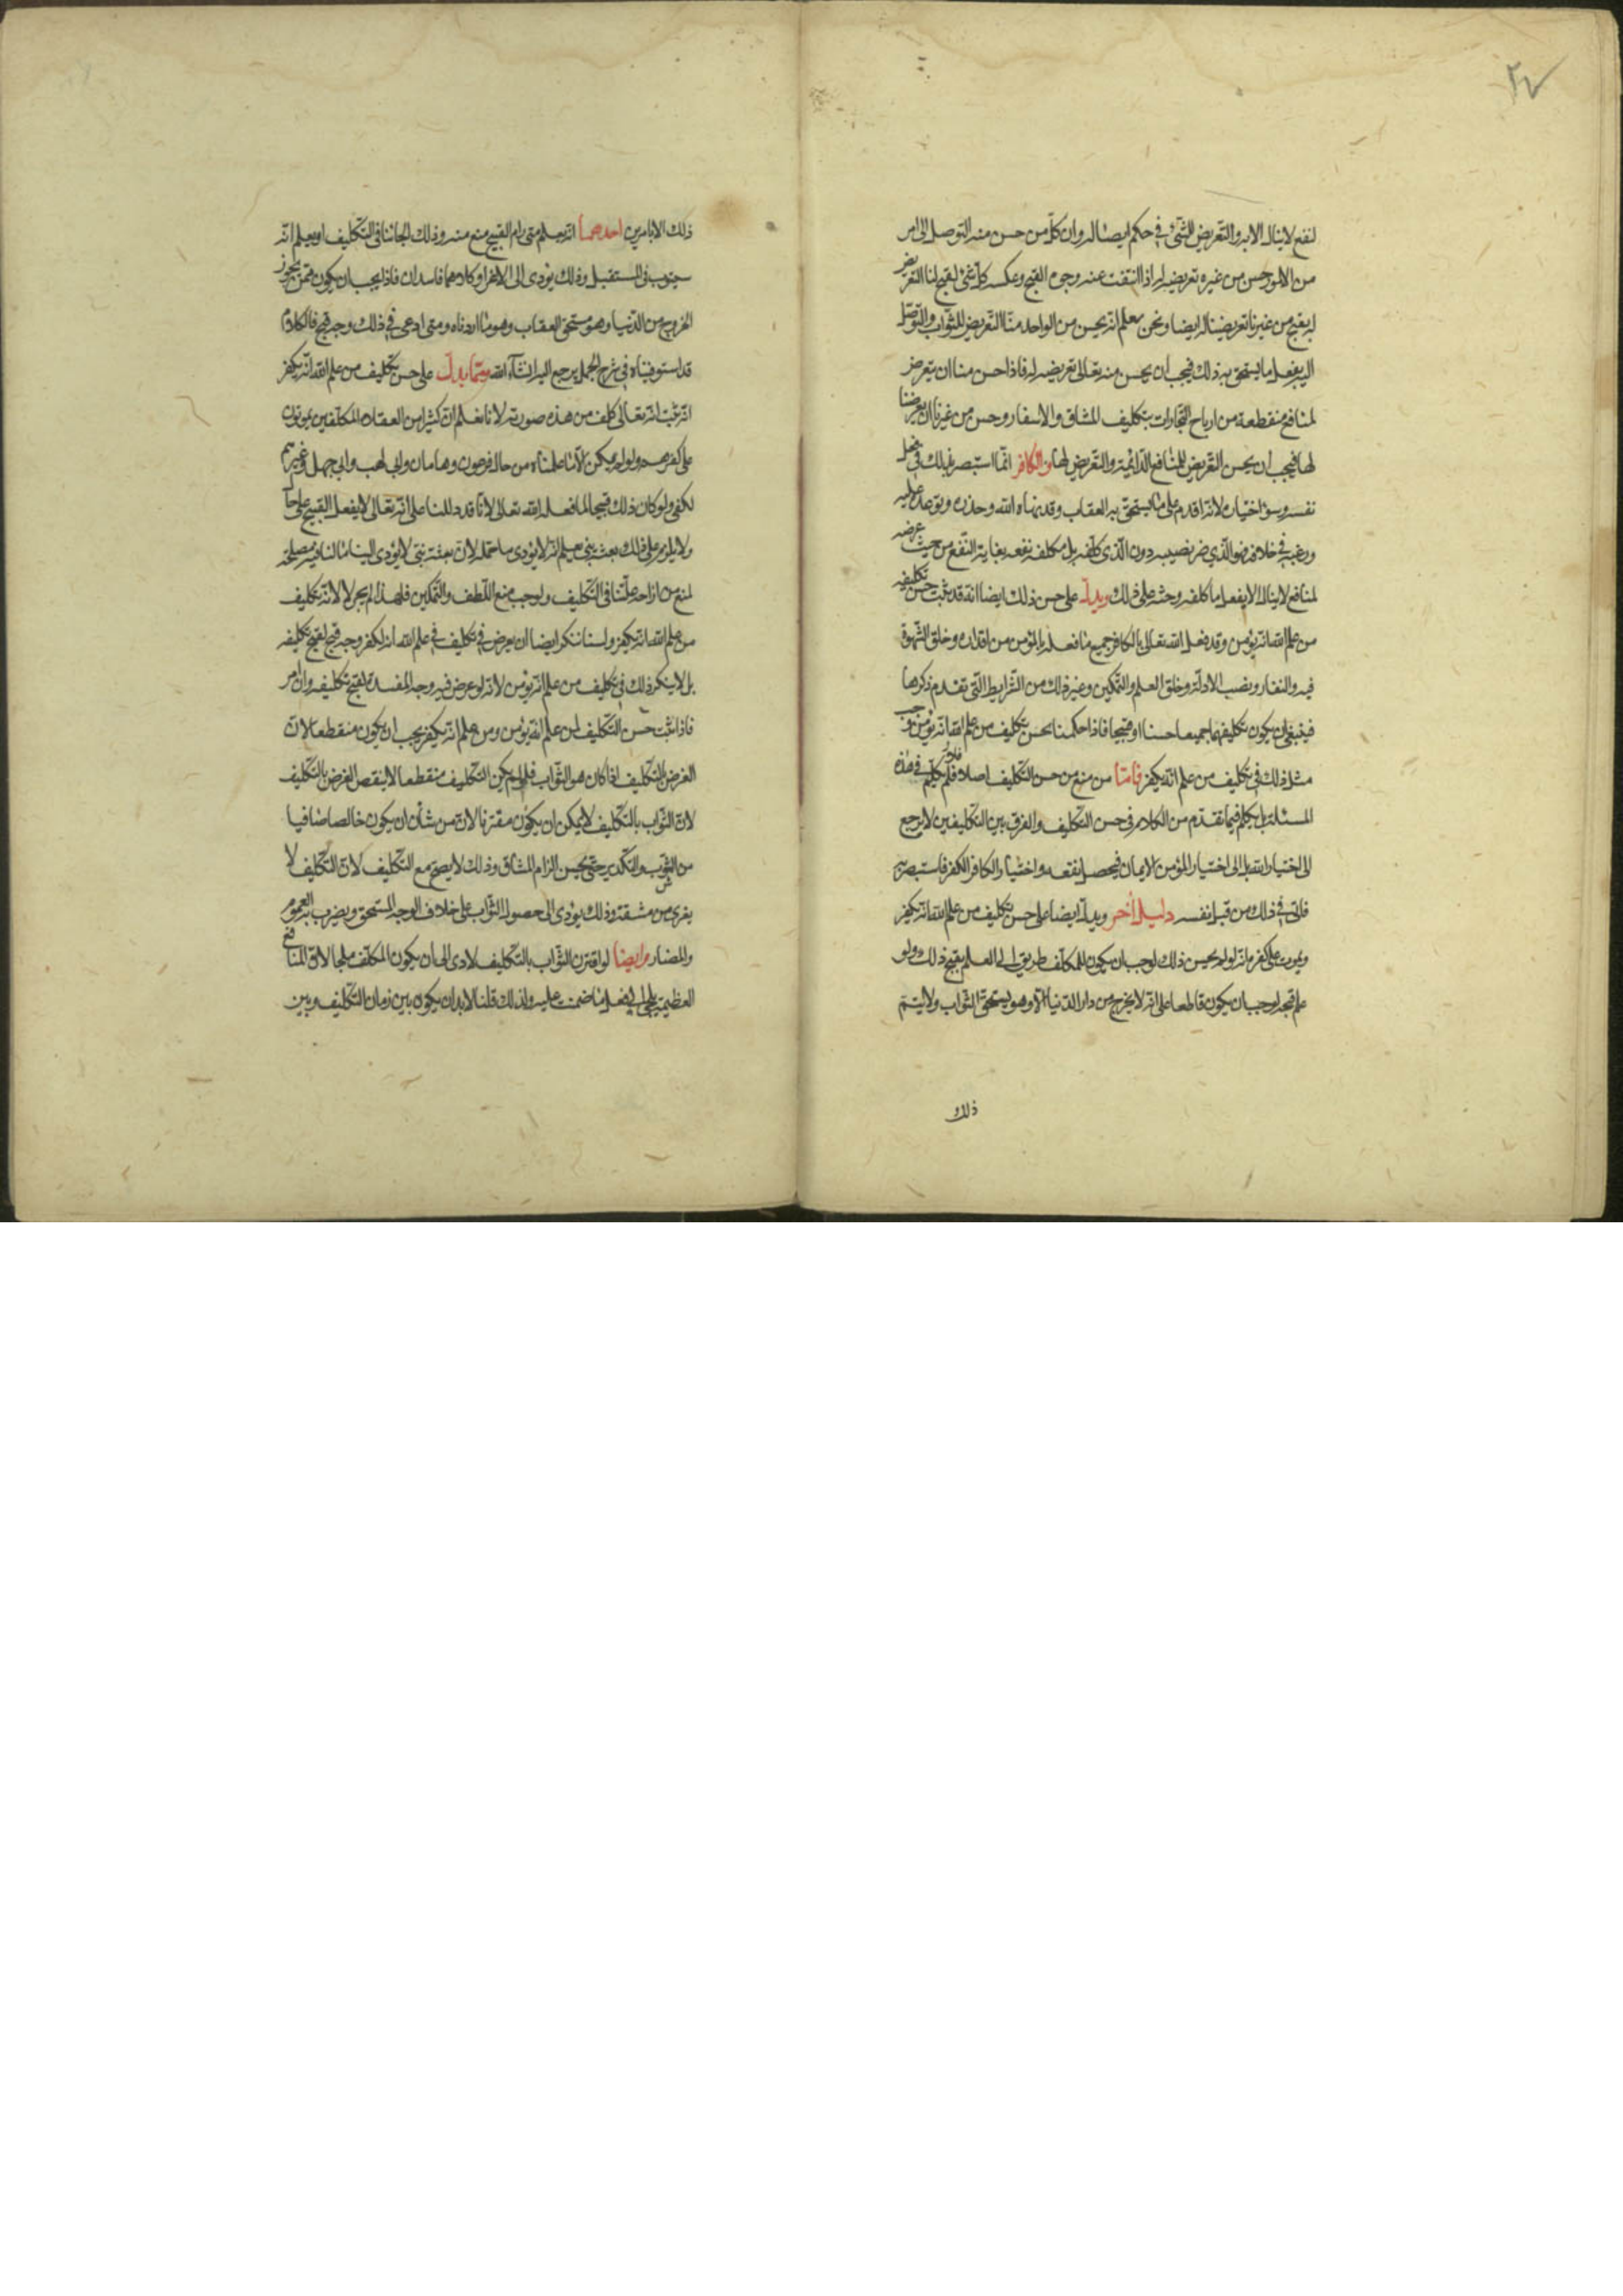 ٢٧
لنفع لاينال الا به والتعريض للشئ في حكم ايصاله وان كل من حسن منه التوصل الى امر
من الامور حسن من غيره تعريضه له اذا انتفت عنه وجوه القبح وعكسه كل شئ يقبح لنا التعريض
له يقبح من غيرنا تعريضنا له ايضا ونحن نعلم انه يحسن من الواحد منا التعريض للثواب والتوصل
اليه بفعل ما يستحق به ذلك فيجب ان يحسن منه تعالى تعريضه له فاذا حسن منا ان يتعرض
لمنافع منقطعة من ارباح التجارات بتكليف المشاق والاسفار وحسن من غيرنا ان يعرضنا
لها فيجب ان يحسن التعريض للمنافع الدائمة والتعريض لها والكافر انما استبصر بذلك في
نفسه وسوء اختياره لانه اقدم على ما يستحق به العقاب وقد نهاه الله وحذره وتوعده عليه
ورغبه في خلافه فهو الذي ضر نصيبه دون الذي كلفه بل مكلفه نفعه بغاية النفع من حيث عرضه
لمنافع لاينال الا بفعل ما كلفه وحثه على ذلك ويدل على حسن ذلك ايضا انه قد ثبت حسن تكليف
من علم الله انه يؤمن وقد فعل الله تعالى بالكافر جميع ما فعله بالمؤمن من اقداره وخلق الشهوة
فيه والنفار ونصب الادلة وخلق العلم والتمكين وغير ذلك من الشرايط التي تقدم ذكرها
فينبغي ان يكون تكليفهما جميعا حسنا او قبيحا فاذا حكمنا بحسن تكليف من علم الله انه يؤمن وجب
مثل ذلك في تكليف من علم انه يكفر فامّا من منع من حسن التكليف اصلا فلا نكلم في هذه
المسئلة بل يكلم فيما تقدم من الكلام في حسن التكليف والفرق بين التكليفين لا يرجع
الى اختيار الله بل الى اختيار المؤمن الايمان فيحصل نفعه واختيار الكافر الكفر فاستبصر به
فاتى في ذلك من قبل نفسه دليل آخر ويدل ايضا على حسن تكليف من علم الله انه يكفر
ويموت على كفره انه لو لم يحسن ذلك لوجب ان يكون للمكلف طريق الى العلم بقبح ذلك ولو
علم قبحه لوجب ان يكون قاطعا على انه لا يخرج من دار الدنيا الا وهو يستحق الثواب ولا يتم
ذلك
ذلك الا بامرين احدهما انه يعلم متى رام القبيح منع منه وذلك الجاء ينافي التكليف او يعلم انه
سيتوب في المستقبل وذلك يؤدي الى الاغراء وكلاهما فاسدان فاذا يجب ان يكون ممن يجوز
الخروج من الدنيا وهو مستحق العقاب وهو ما اردناه ومتى ادعى في ذلك وجه قبح فالكلام
قد استوفيناه في شرح الجمل يرجع اليه انشاء الله وممّا يدل على حسن تكليف من علم الله انه يكفر
انه ثبت انه تعالى كلف من هذه صورته لانا نعلم ان كثيرا من العقلاء المكلفين يموتون
على كفرهم ولو لم يكن الا ما علمناه من حال فرعون وهامان وابي لهب وابي جهل وغيرهم
لكفى ولو كان ذلك قبيحا لما فعله الله تعالى لانا قد دللنا على انه تعالى لا يفعل القبيح على حال
ولا يلزم على ذلك بعثة نبي يعلم انه لا يؤدي ما حمله لان بعثة نبي لا يؤدي الينا ما لنا فيه مصلحة
لمنع من ازاحة علتنا في التكليف ولوجب منع اللطف والتمكين فلهذا لم يجز لا لانه تكليف
من علم الله انه يكفر ولسنا ننكر ايضا ان يعرض في تكليف في علم الله انه يكفر وجه قبح لقبح تكليفه
بل لا ينكر ذلك في تكليف من علم انه يؤمن لانه لو عرض فيه وجه المفسدة لقبح تكليفه وان امر
فاذا ثبت حسن التكليف لمن علم انه يؤمن ومن علم انه يكفر يجب ان يكون منقطعا لان
الغرض بالتكليف اذا كان هو الثواب فلو لم يكن التكليف منقطعا لانتقص الغرض بالتكليف
لان الثواب بالتكليف لا يمكن ان يكون مقترنا لان من شأنه ان يكون خالصا صافيا
من الشوب والتكدير حتى يحسن الزام المشاق وذلك لا يصح مع التكليف لان التكليف لا
يعرى من مشقة وذلك يؤدي الى حصول الثواب على خلاف الوجه المستحق ويضرب به الغموم
والمضار وايضا لو اقترن الثواب بالتكليف لادى الى ان يكون المكلف ملجا لان المنافع
العظيمة تلجي الى فعل ما ضمنت عليه ولذلك قلنا لا بد ان يكون بين زمان التكليف وبين